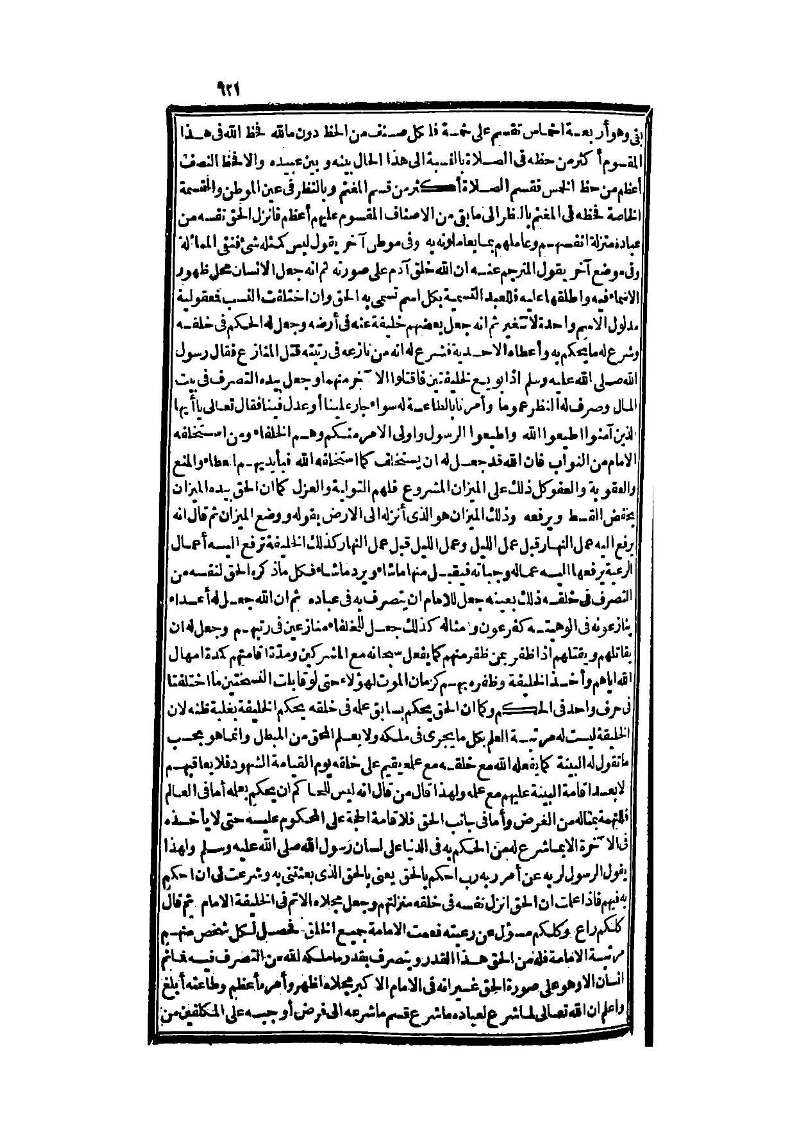 ٩٢١
بقي وهو أربعة اخماس تقسم على خمسة فلكل صنف من الحظ دون مالله فحظ الله في هذا
المقسوم أكثر من حظه في الصلاة بالنسبة الى هذا الحال بينه وبين عبيده والافحظ النصف
أعظم من حظ الخمس فقسم الصلاة أكثر من قسم المغنم وبالنظر في عين الموطن والقسمة
الخاصة فحظه في المغنم بالنظر الى مابقى من الاصناف المقسوم عليهم أعظم فانزل الحق نفسه من
عباده منزلة انفسهم وعاملهم بما يعاملونه به وفي موطن آخر يقول ليس كمثله شئ فنفى المماثلة
وفي موضع آخر يقول المترجم عنه ان الله خلق آدم على صورته ثم انه جعل الانسان محل ظهور
الاسماء فيه واطلقها عليه فللعبد التسمية بكل اسم تسمى به الحق وان اختلفت النسب فعقولية
مدلول الاسم واحدة لا تتغير ثم انه جعل بعضهم خليفة عنه في أرضه وجعل له الحكم في خلقه
وشرع له ما يحكم به وأعطاه الاحدية فشرع له انه من نازعه في رتبته قتل المنازع فقال رسول
الله صلى الله عليه وسلم اذا بويع لخليفتين فاقتلوا الآخر منهما وجعل بيده التصرف في بيت
المال وصرف له النظر عموما وأمرنا بالطاعة له سواء جار علينا أو عدل فينا فقال تعالى يا أيها
الذين آمنوا اطيعوا الله واطيعوا الرسول واولى الامر منكم وهم الخلفاء ومن استخلفه
الامام من النواب فان الله قد جعل له ان يستخلف كما استخلفه الله فبأيديهم العطاء والمنع
والعقوبة والعفو كل ذلك على الميزان المشروع فلهم التولية والعزل كما ان الحق بيده الميزان
يخفض القسط ويرفعه وذلك الميزان هو الذى أنزله الى الارض بقوله ووضع الميزان ثم قال انه
يرفع اليه عمل النهار قبل عمل الليل وعمل الليل قبل عمل النهار كذلك الخليفة ترفع اليه أعمال
الرعية يرفعها اليه عماله وجباته فيقبل منها ماشاء ويرد ماشاء فكل ماذكره الحق لنفسه من
التصرف في خلقه ذلك بعينه جعل للامام ان يتصرف به في عباده ثم ان الله جعل له أعداء
ينازعونه في الوهيته كفرعون وامثاله كذلك جعل للخلفاء منازعين في رتبهم وجعل له ان
يقاتلهم ويقتلهم اذا ظفر بمن ظفر منهم كما يفعل سبحانه مع المشركين ومدة اقامتهم كمدة امهال
الله اياهم وأخذ الخليفة وظفره بهم كزمان الموت لهؤلاء حتى لو قابلت النسختين ما اختلفتا
في حرف واحد في الحكم وكما ان الحق يحكم بسابق علمه في خلقه يحكم الخليفة بغلبة ظنه لان
الخليفة ليست له مرتبة العلم بكل ما يجرى في ملكه ولا يعلم المحق من المبطل وانما هو بحسب
ما تقول له البينة كما يفعله الله مع خلقه مع علمه يقيم على خلقه يوم القيامة الشهود فلا يعاقبهم
الا بعد اقامة البينة عليهم مع علمه ولهذا قال من قال انه ليس للحاكم ان يحكم بعلمه أما في العالم
فللتهمة بماله من الغرض وأما في جانب الحق فلاقامة الحجة على المحكوم عليه حتى لا يأخذه
في الآخرة الا بما شرع له من الحكم به في الدنيا على لسان رسول الله صلى الله عليه وسلم ولهذا
يقول الرسول لربه عن أمر ربه رب احكم بالحق يعنى بالحق الذى بعثتنى به وشرعت لى ان احكم
به فيهم فاذا علمت ان الحق انزل نفسه في خلقه منزلتهم وجعل مجلاه الاتم في الخليفة الامام ثم قال
كلكم راع وكلكم مسؤل عن رعيته فعمت الامامة جميع الخلق فحصل لكل شخص منهم
مرتبة الامامة فله من الحق هذا القدر ويتصرف بقدر ما ملكه الله من التصرف فيه فما ثم
انسان الا وهو على صورة الحق غير انه في الامام الاكبر مجلاه اظهر وأمره أعظم وطاعته أبلغ
واعلم ان الله تعالى لما شرع لعباده ما شرع قسم ما شرعه الى فرض أوجبه على المكلفين من